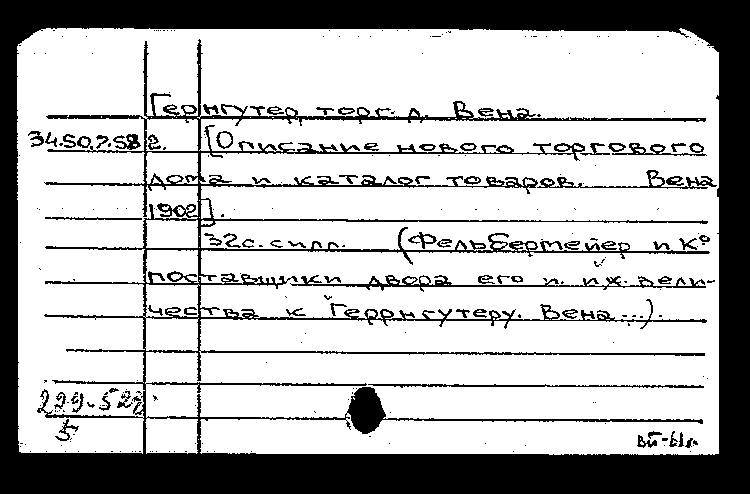 Гернгутер, торг. д. Вена.
34.50.7.58 2. [Описание нового торгового
дома и каталог товаров. Вена
1902].
32с. с илл. (Фельбермейер и К°
поставщики двора его и. и ж. вели-
чества к Геррнгутеру. Вена...).
229-528
5
ВП-61г.